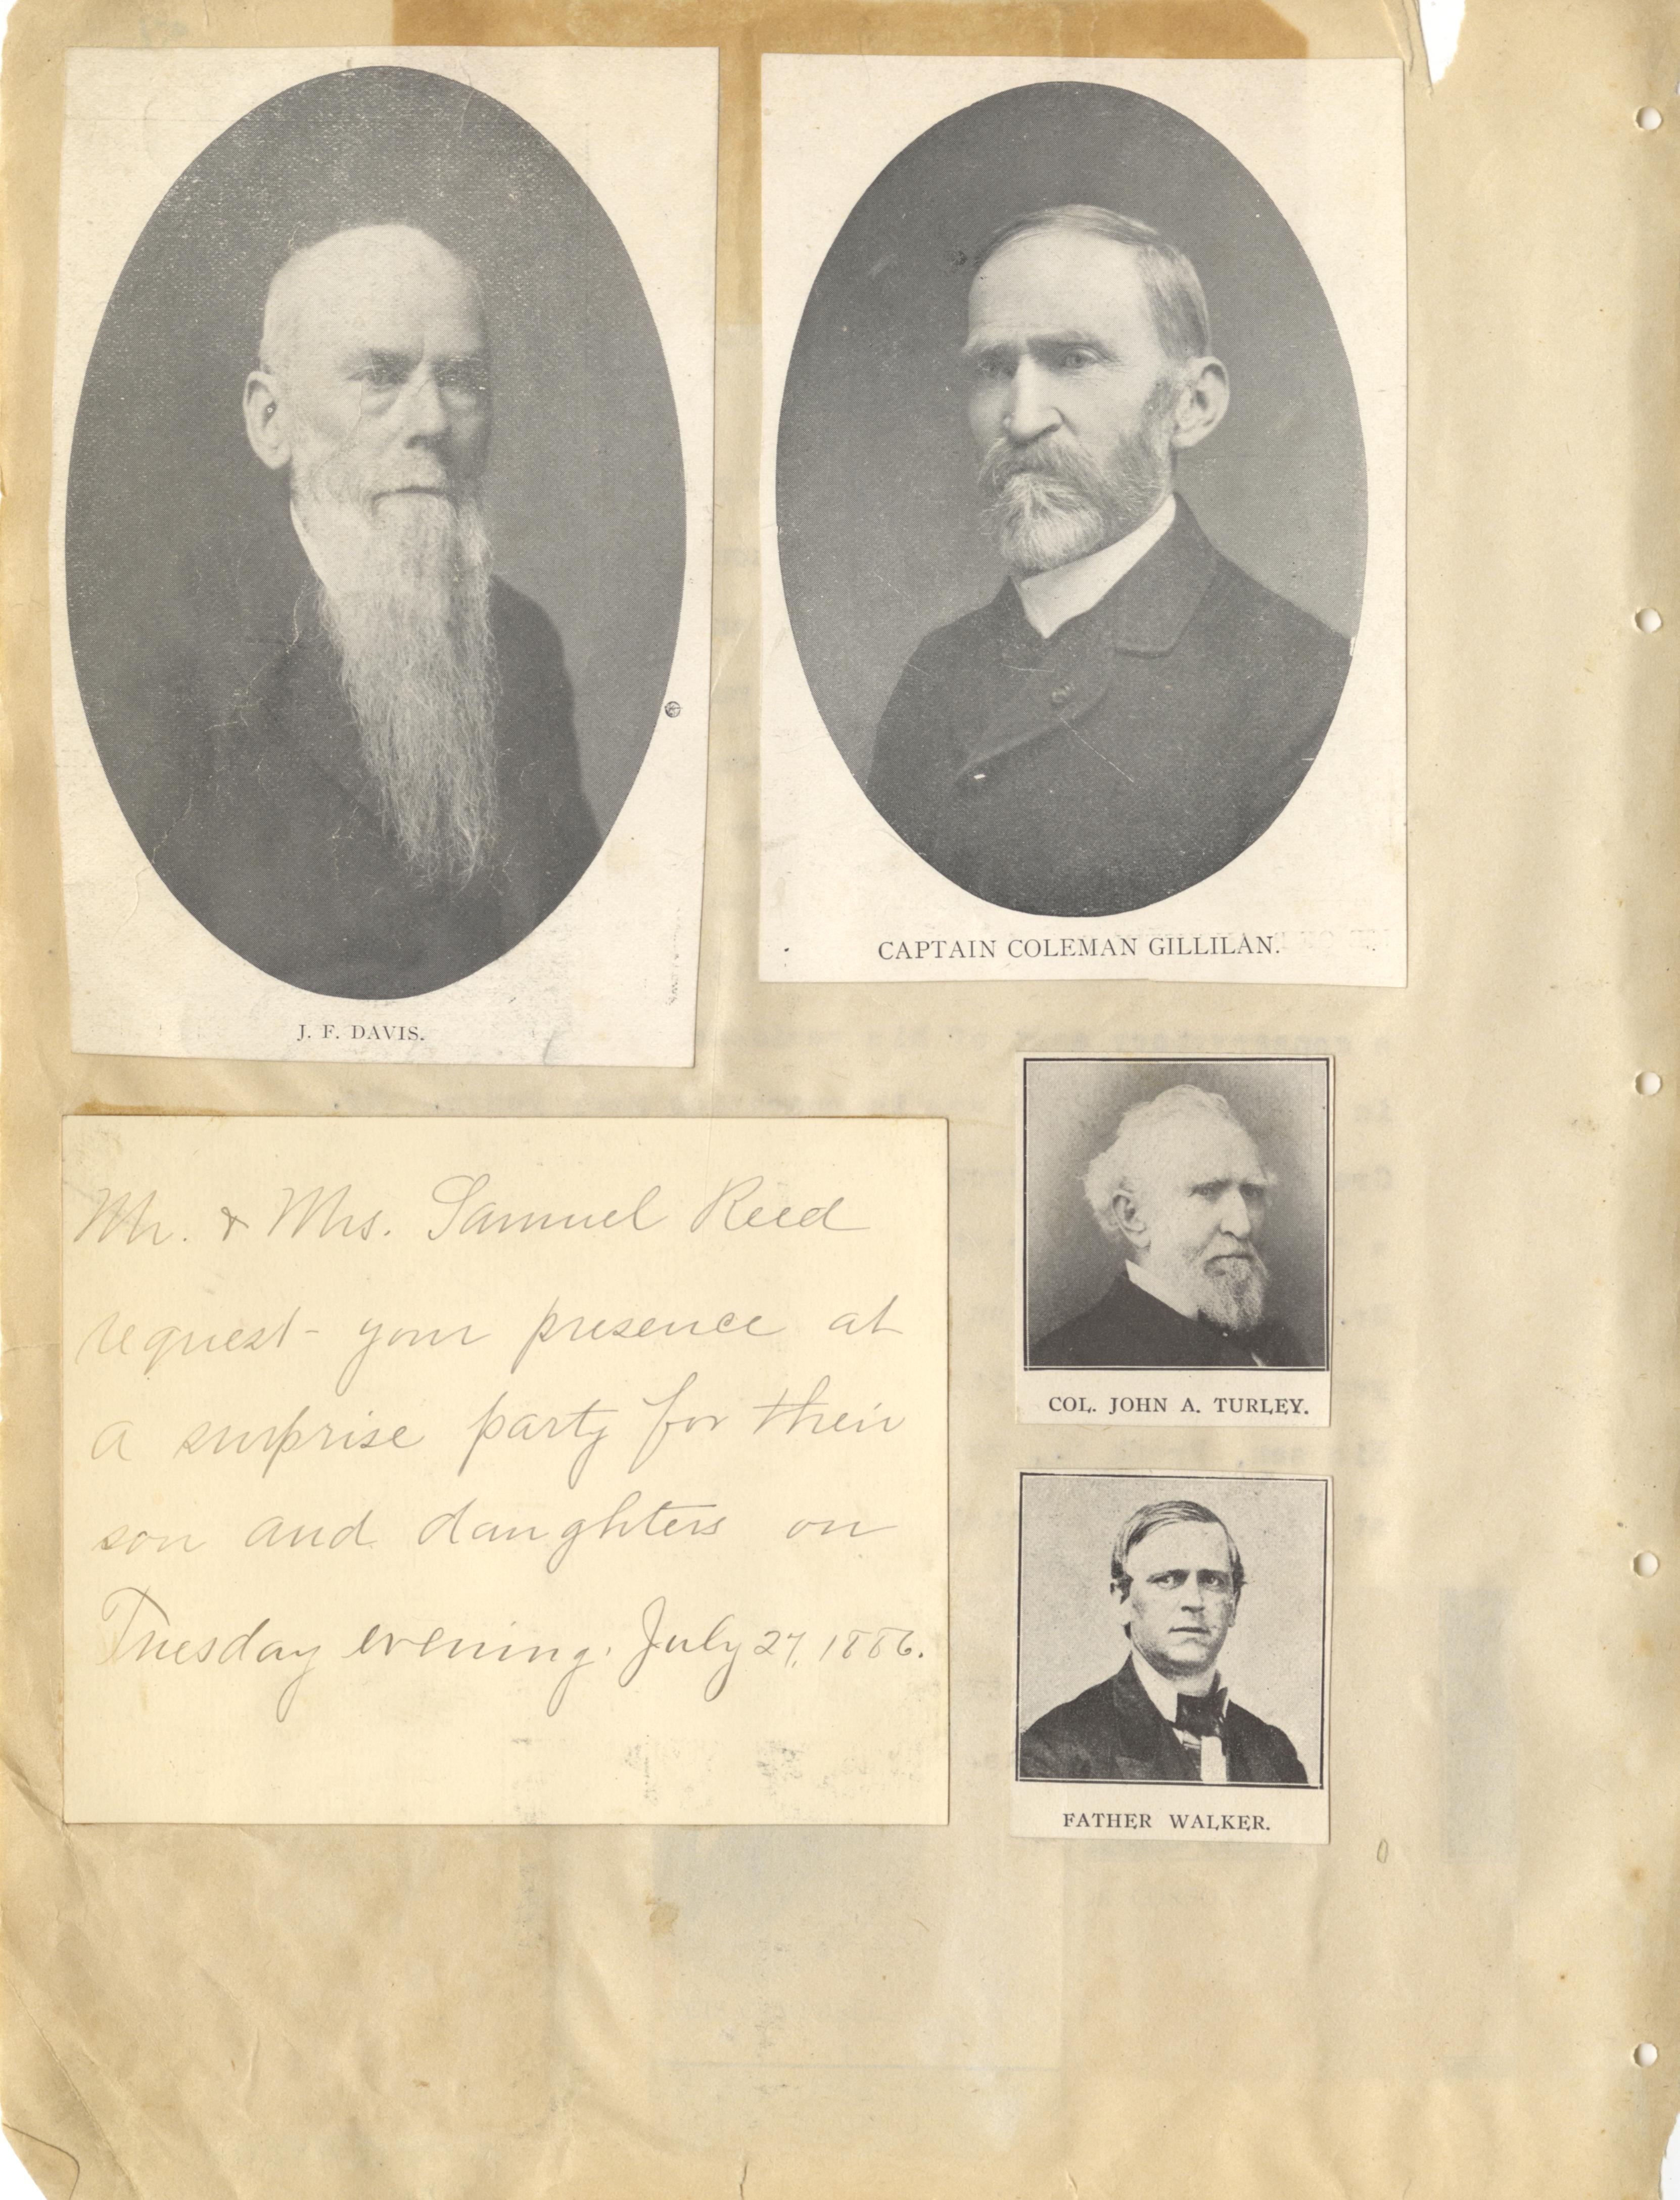 J. F. DAVIS.
CAPTAIN COLEMAN GILLILAN.
Mr. & Mrs. Samuel Reed
request your presence at
a surprise party for their
son and daughters on
Tuesday evening. July 27, 1886.
COL. JOHN A. TURLEY.
FATHER WALKER.